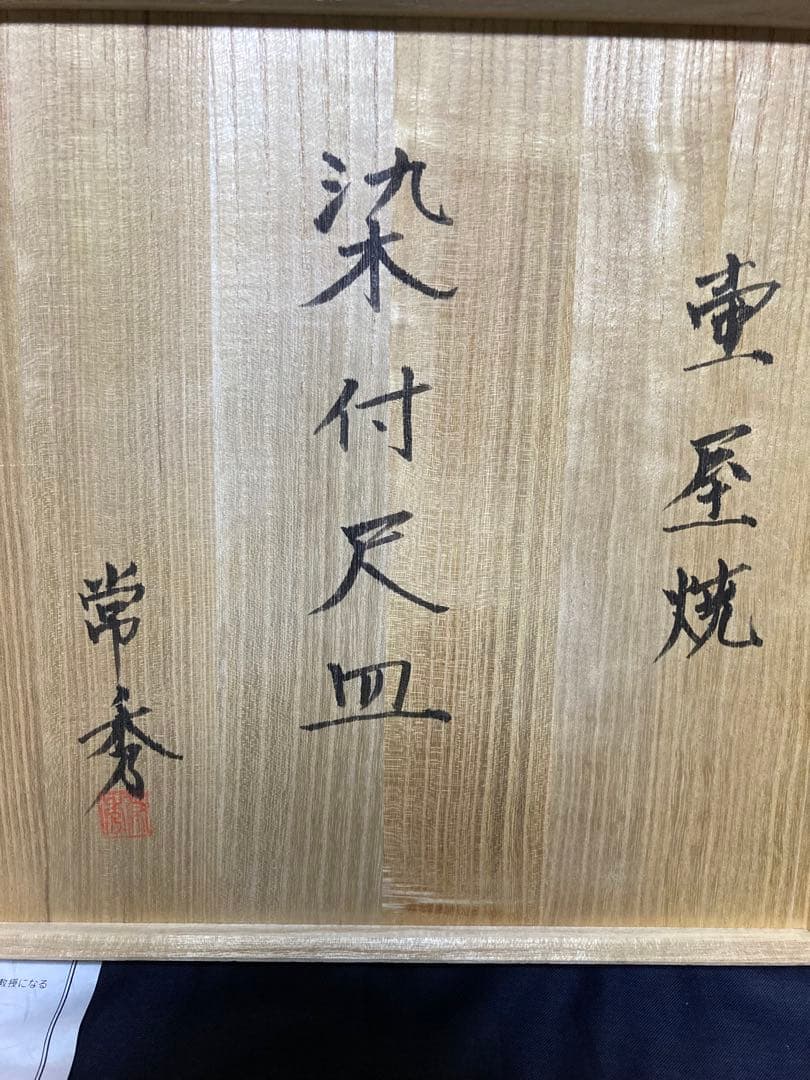 壷屋焼
染付尺皿
常秀
教授になる